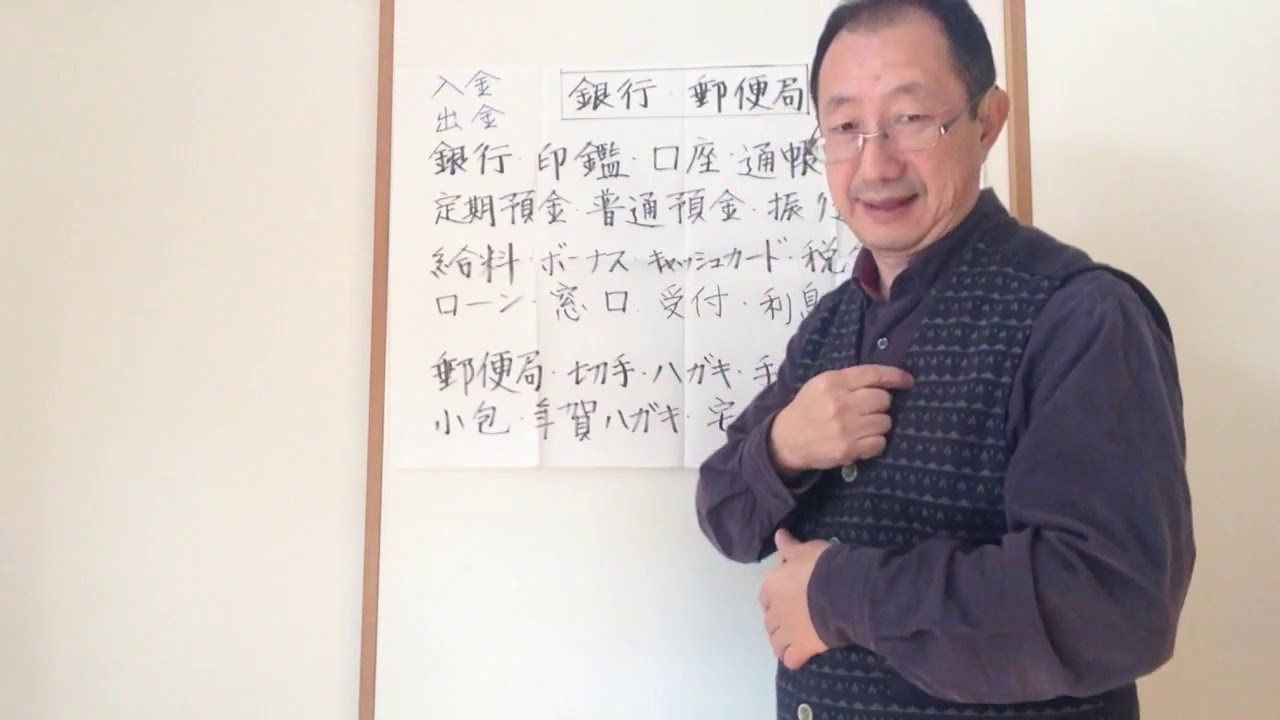 入金
出金
銀行・郵便局
銀行・印鑑・口座・通帳
定期預金・普通預金・振
給料・ボーナス・キャッシュカード・税
ローン・窓口・受付・利息
郵便局・切手・ハガキ・手
小包・年賀ハガキ・宅